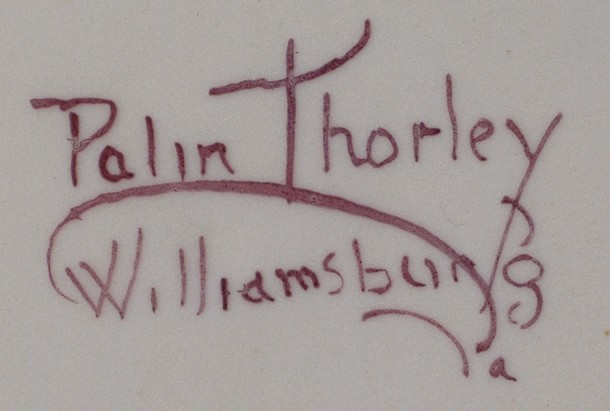 Palin Thorley
Williamsburg
Va